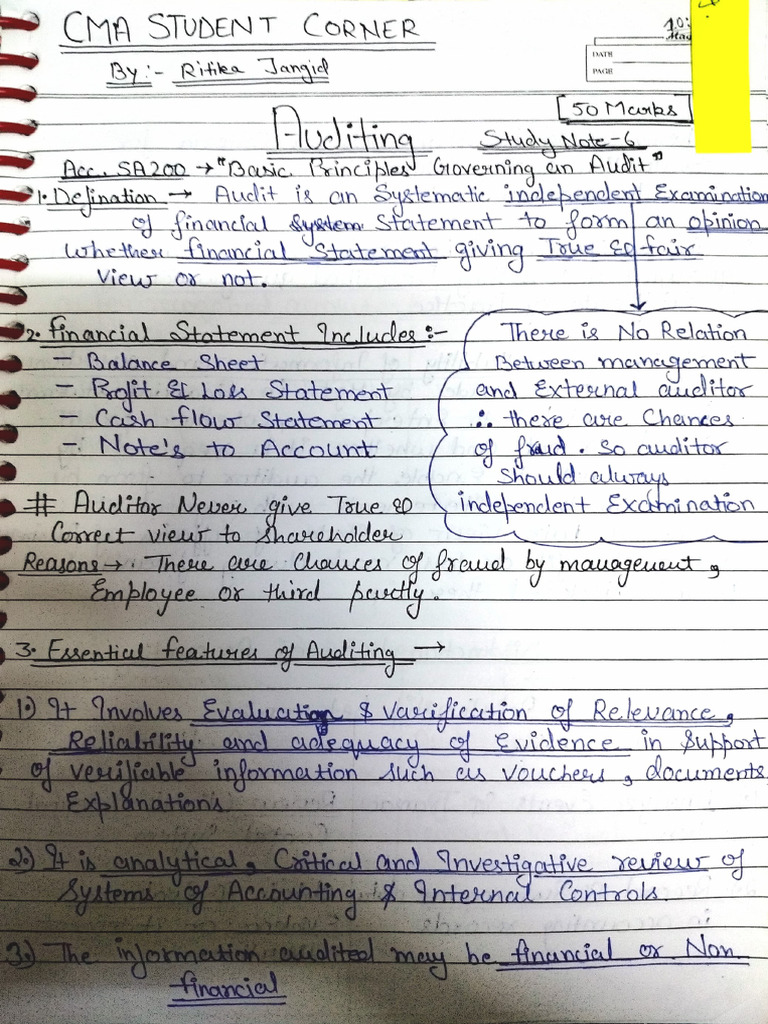 CMA STUDENT CORNER
By :- Ritika Jangid
DATE
PAGE
[50 Marks]
Auditing
Study Note-6
Acc. SA200 → "Basic Principles Governing an Audit"
1. Defination → Audit is an Systematic independent Examination
of financial system Statement to form an opinion
whether financial Statement giving True & fair
view or not.
2. financial Statement Includes :-
- Balance Sheet
- Profit & Loss Statement
- Cash flow Statement
- Note's to Account
There is No Relation
Between management
and External auditor
∴ there are Chances
of fraud. So auditor
should always
independent Examination
# Auditor Never give True &
Correct view to shareholder
Reasons → There are chances of fraud by management,
Employee or third partly.
3. Essential features of Auditing →
1.) It Involves Evaluation & varification of Relevance,
Reliability and adequacy of Evidence in Support
of verifiable information such as vouchers, documents,
Explanations
2.) It is analytical, Critical and Investigative review of
Systems of Accounting & Internal Controls.
3.) The information audited may be financial or Non
financial